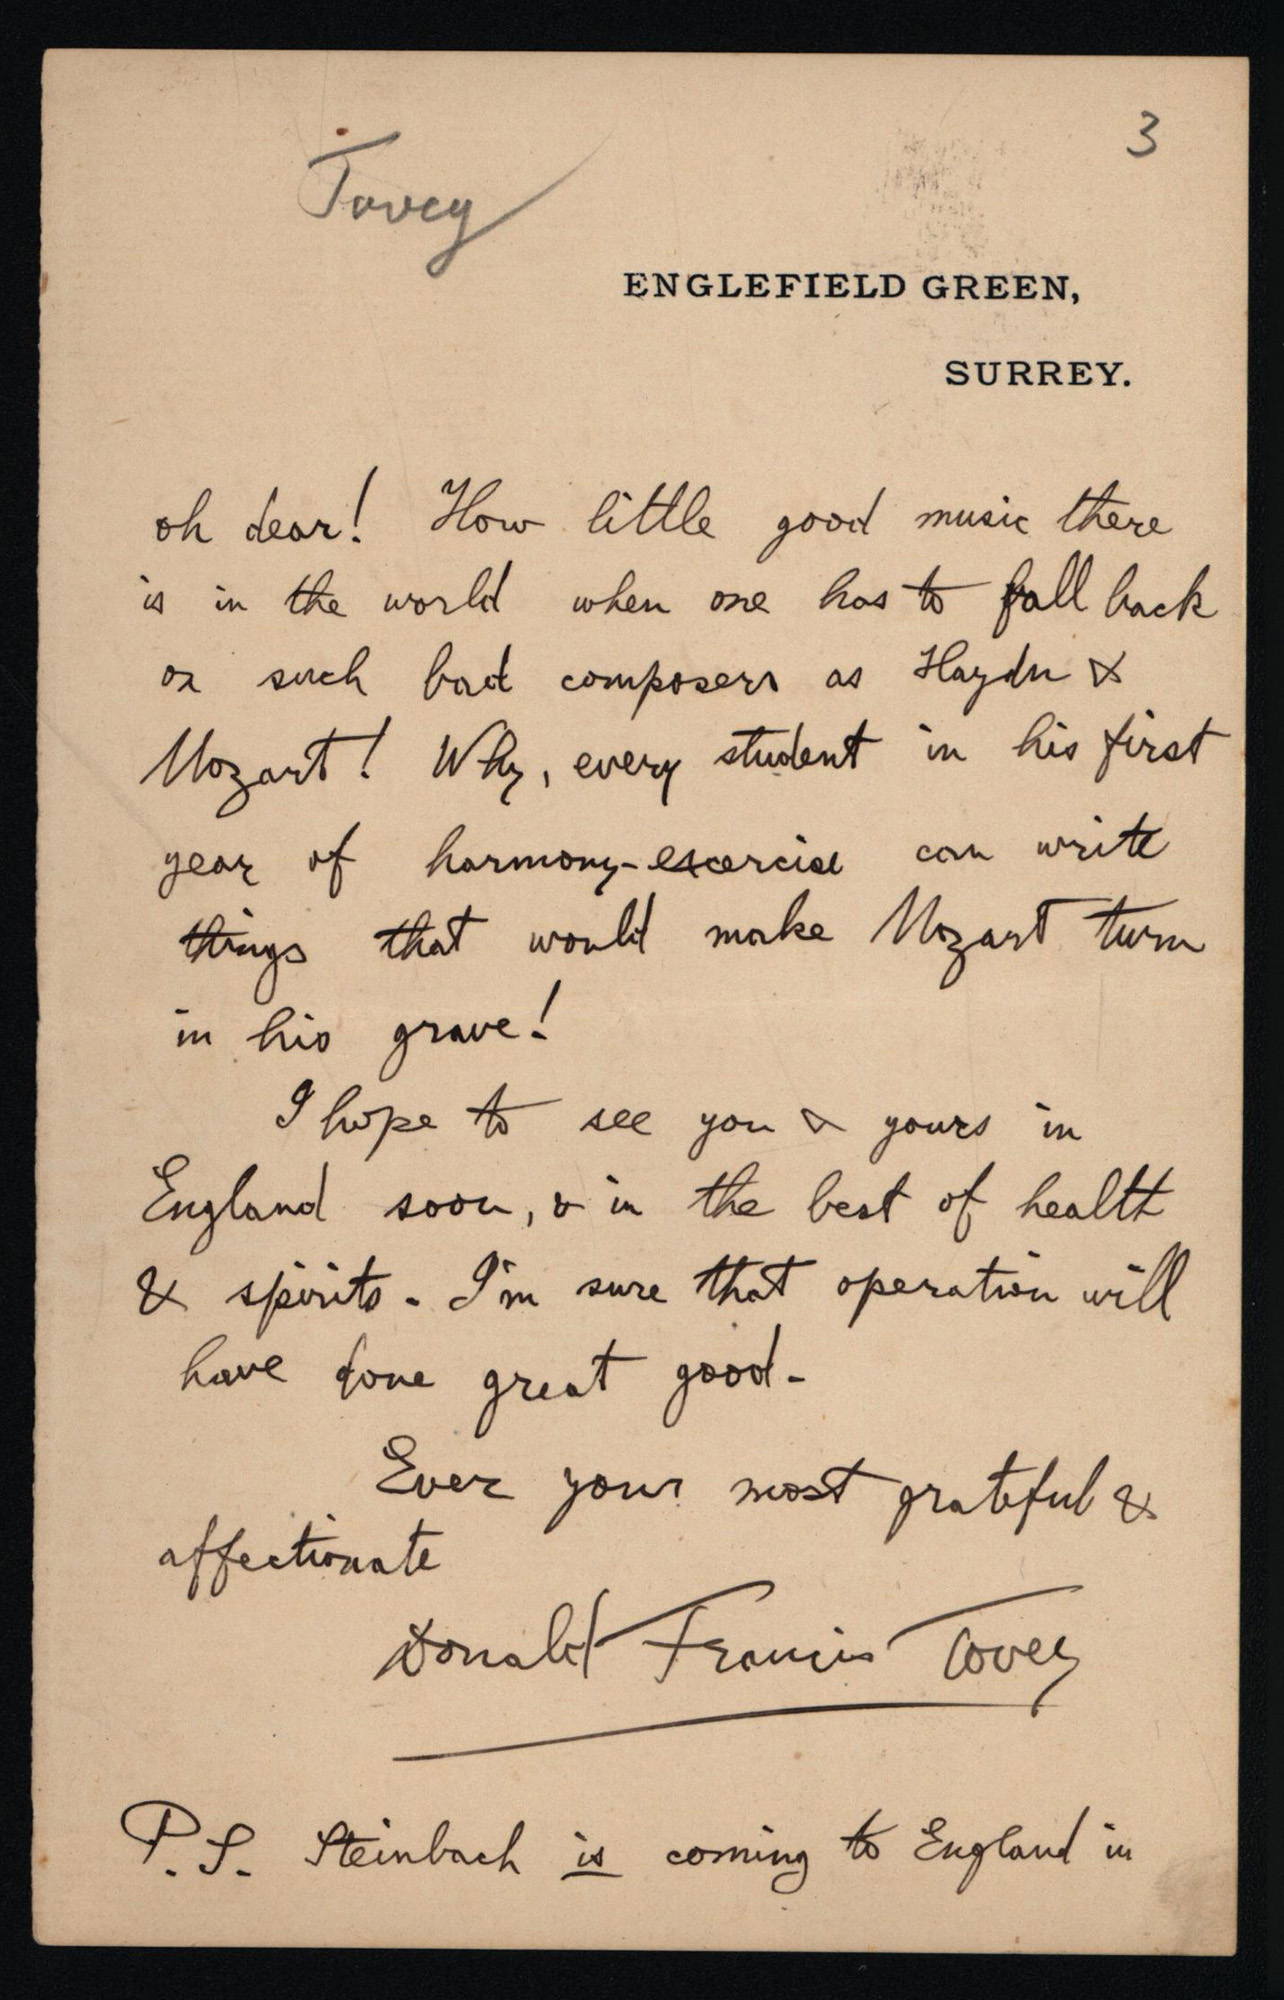 3
Tovey
ENGLEFIELD GREEN,
SURREY.
oh dear! How little good music there
is in the world when one has to fall back
on such bad composers as Haydn &
Mozart! Why, every student in his first
year of harmony-excercise can write
things that would make Mozart turn
in his grave!
I hope to see you & yours in
England soon, & in the best of health
& spirits. I'm sure that operation will
have done great good.
Ever your most grateful &
affectionate
Donald Francis Tovey
P.S. Steinbach is coming to England in